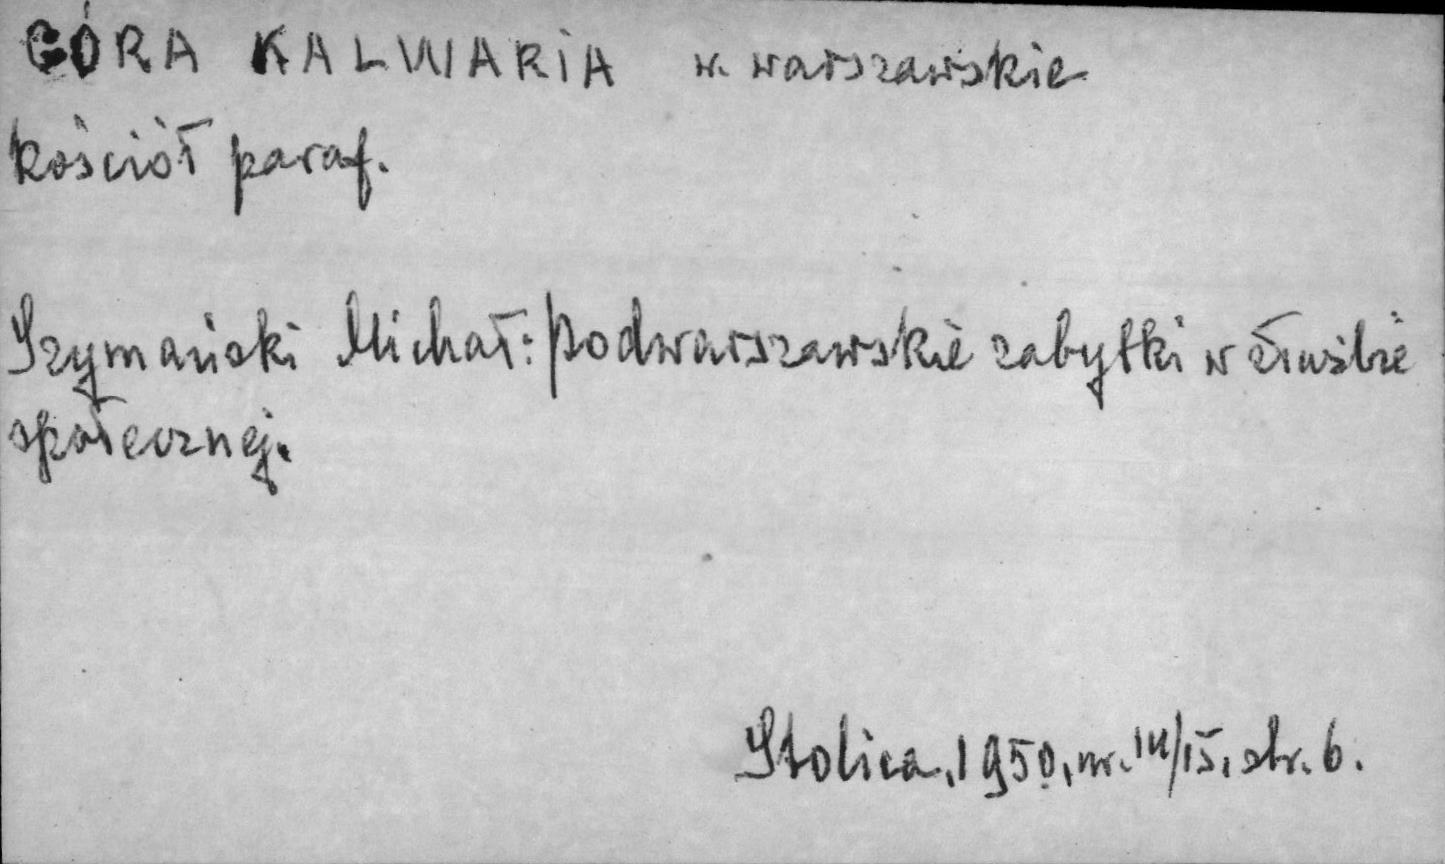 GÓRA KALWARIA w. warszawskie
kościół paraf.
Szymański Michał: Podwarszawskie zabytki w służbie
społecznej.
Stolica, 1950, nr. 14/15, str. 6.